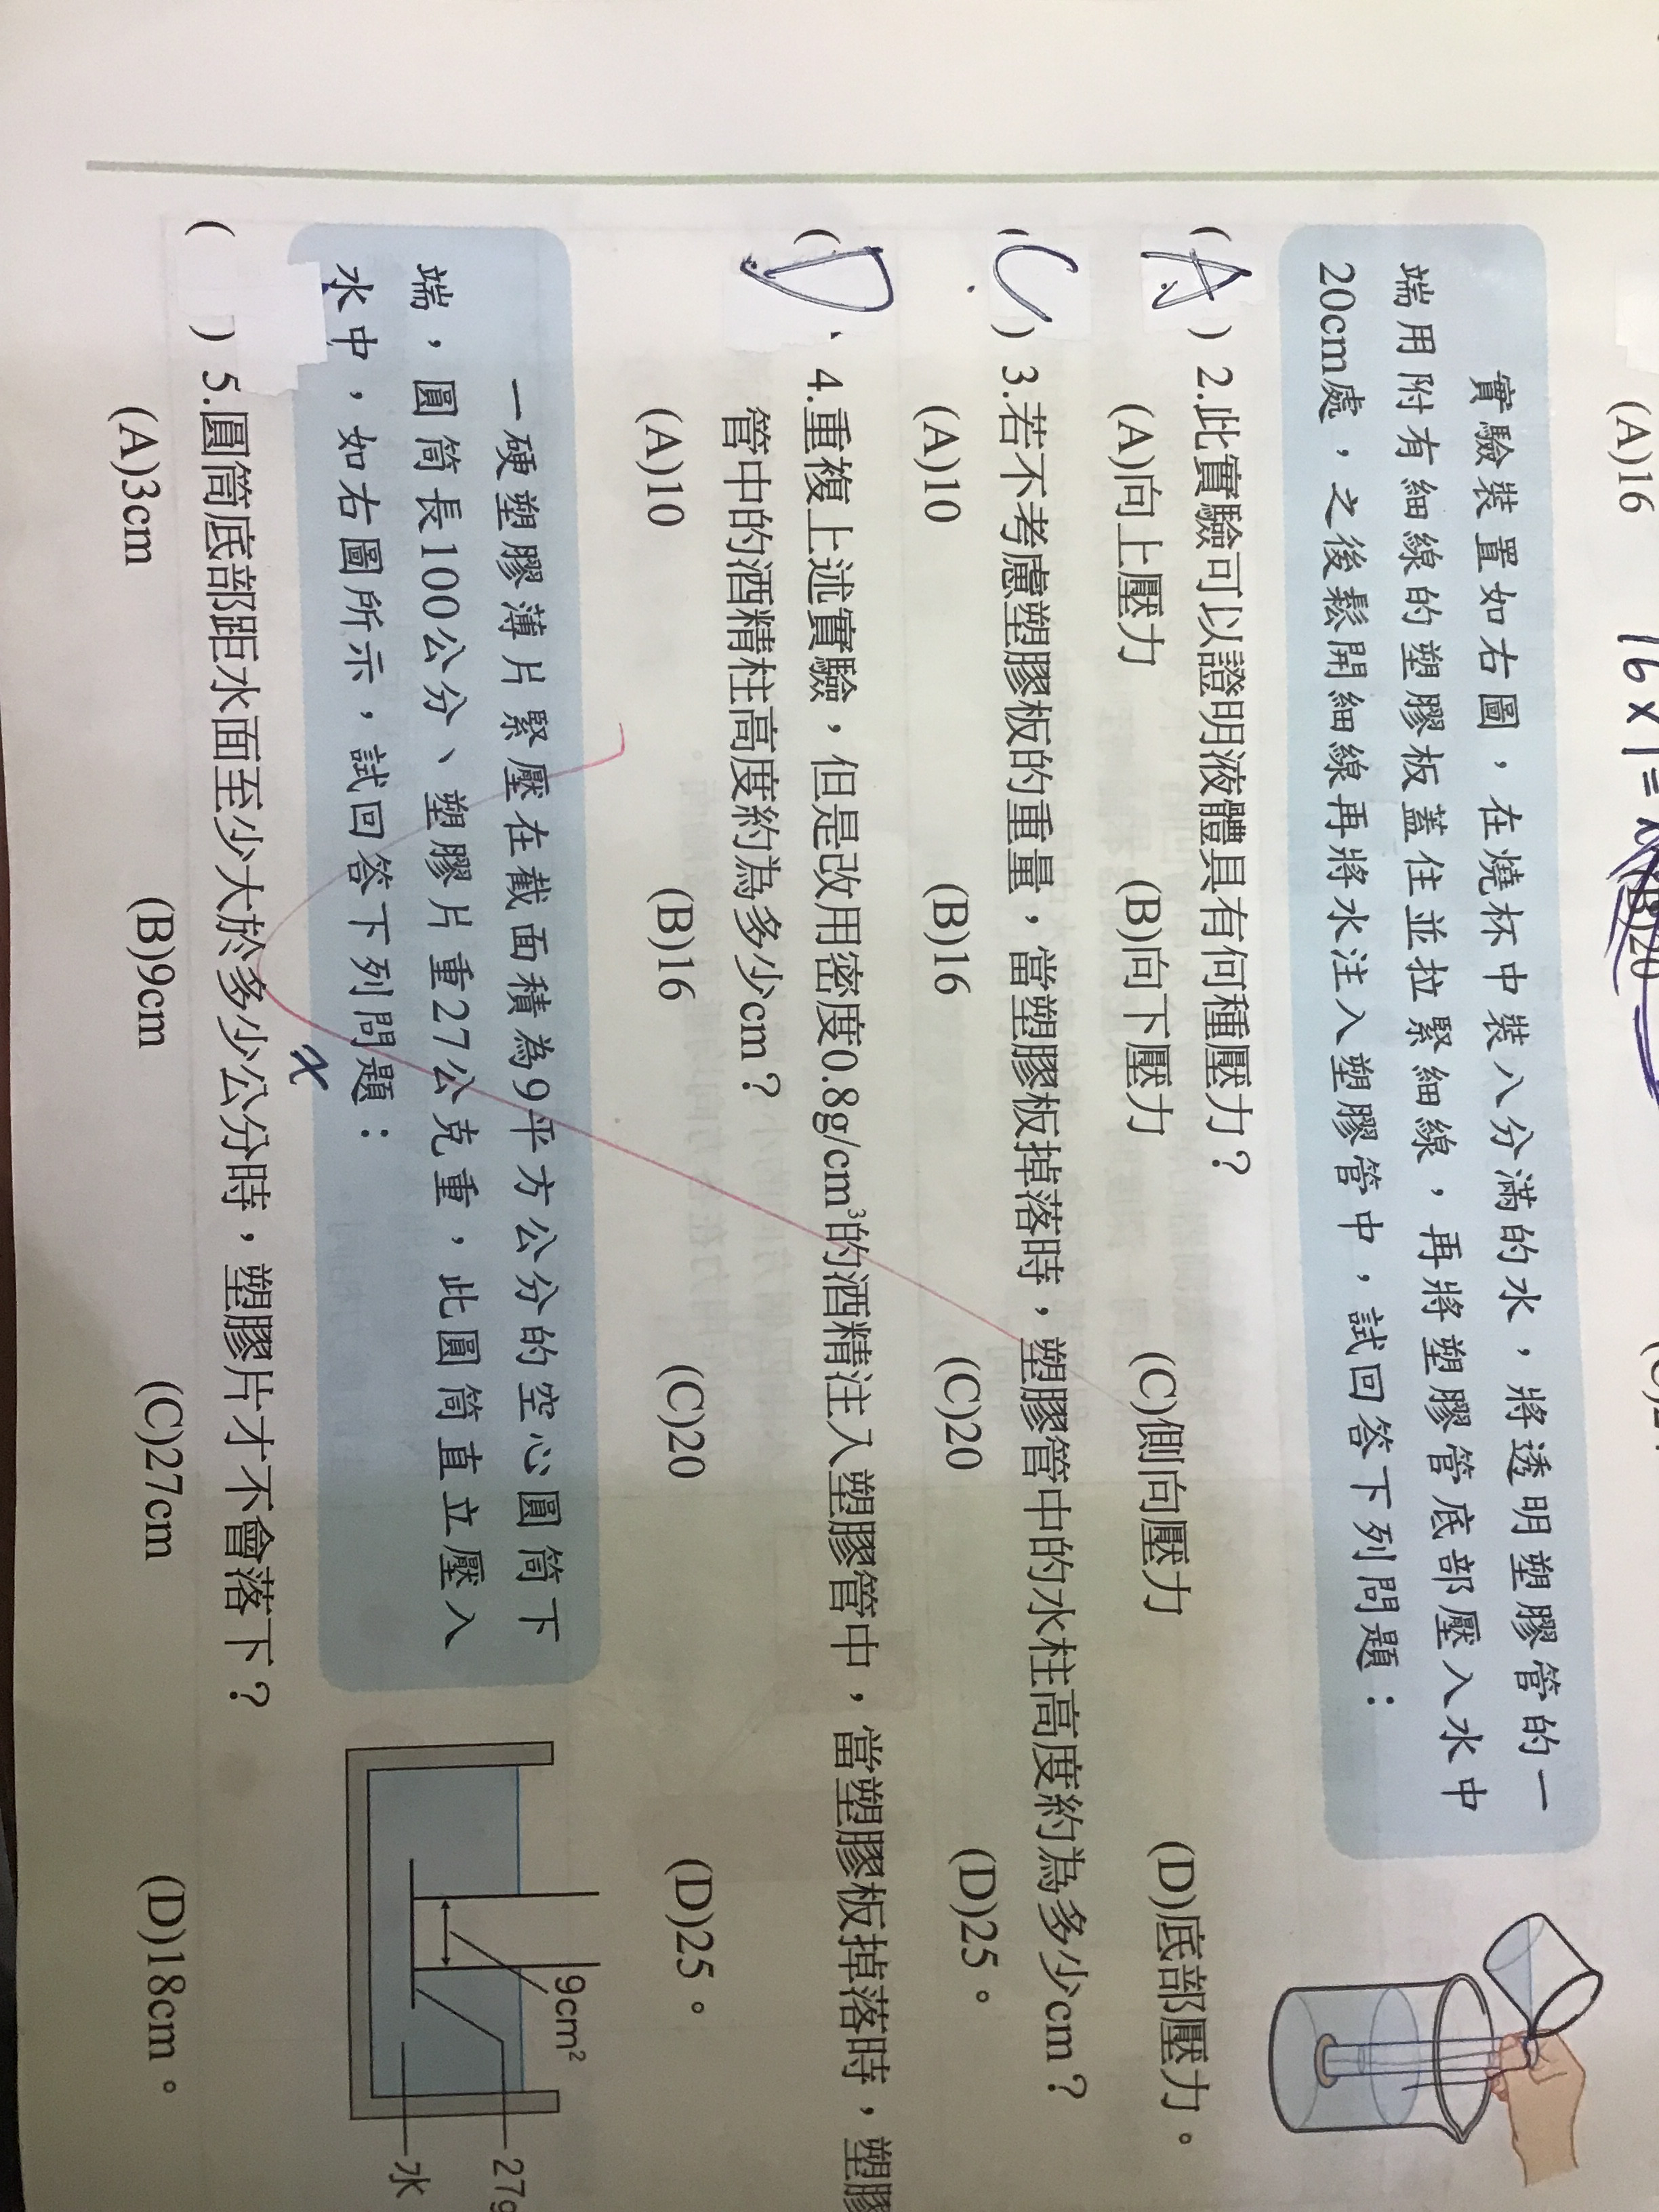 (A)16
16×1=
實驗裝置如右圖，在燒杯中裝八分滿的水，將透明塑膠管的一
端用附有細線的塑膠板蓋住並拉緊細線，再將塑膠管底部壓入水中
20cm處，之後鬆開細線再將水注入塑膠管中，試回答下列問題：
(A) 2.此實驗可以證明液體具有何種壓力？
(A)向上壓力 (B)向下壓力 (C)側向壓力 (D)底部壓力。
(C) 3.若不考慮塑膠板的重量，當塑膠板掉落時，塑膠管中的水柱高度約為多少cm？
(A)10 (B)16 (C)20 (D)25。
(D 4.重複上述實驗，但是改用密度0.8g/cm³的酒精注入塑膠管中，當塑膠板掉落時，塑膠
管中的酒精柱高度約為多少cm？
(A)10 (B)16 (C)20 (D)25。
一硬塑膠薄片緊壓在截面積為9平方公分的空心圓筒下
端，圓筒長100公分、塑膠片重27公克重，此圓筒直立壓入
水中，如右圖所示，試回答下列問題：
9cm²
27g
水
( ) 5.圓筒底部距水面至少大於多少公分時，塑膠片才不會落下？
(A)3cm (B)9cm (C)27cm (D)18cm。